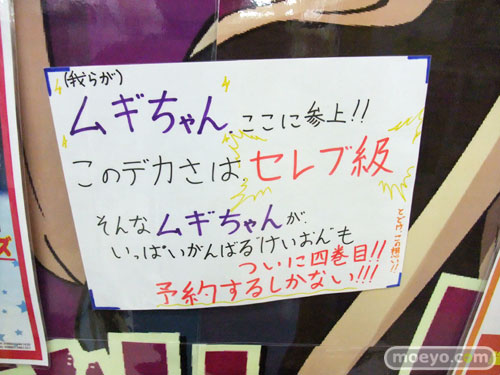 (我らが)
ムギちゃん、ここに参上!!
このデカさは、セレブ級
そんなムギちゃんが、
いっぱいがんばる"けいおん"も
ついに四巻目!!
予約するしかない!!!
とどけ この想い!!
moeyo.com